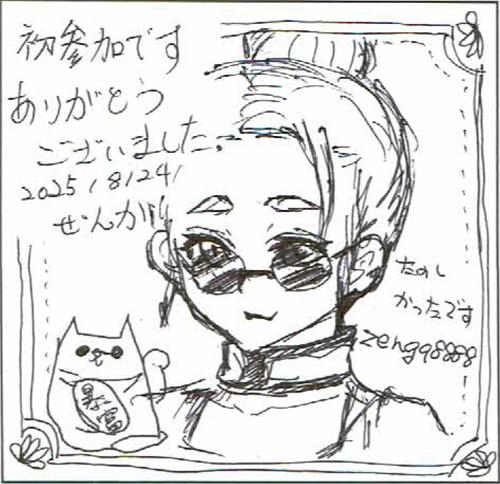 初参加です
ありがとう
ございました。
2025/8/24/
せんが
たのし
かったです
zengq8888
暴富